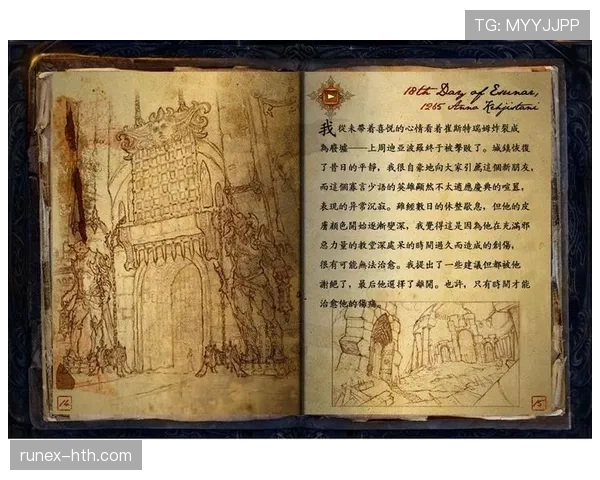 TG: MYYJJPP
18th Day of Esunar,
1265 Anno Kehjistani
我從未帶着喜悅的心情看着崔斯特瑞姆炸裂成
為廢墟——上周迪亞波羅終于被擊敗了。城鎮恢復
了昔日的平靜，我很自豪地向大家引薦這個新朋友，
而這個寡言少語的英雄顯然不太適應慶典的喧囂，
表現的异常沉寂。雖經數日的休整歇息，但他的皮
膚顏色開始逐漸變深，我覺得這是因為他在充滿邪
惡力量的教堂深處呆的時間過久而造成的創傷，
很有可能無法治愈。我提出了一些建議但都被他
謝絕了，最后他選擇了離開。也許，只有時間才能
治愈他的傷痛。
14
15
runex-hth.com